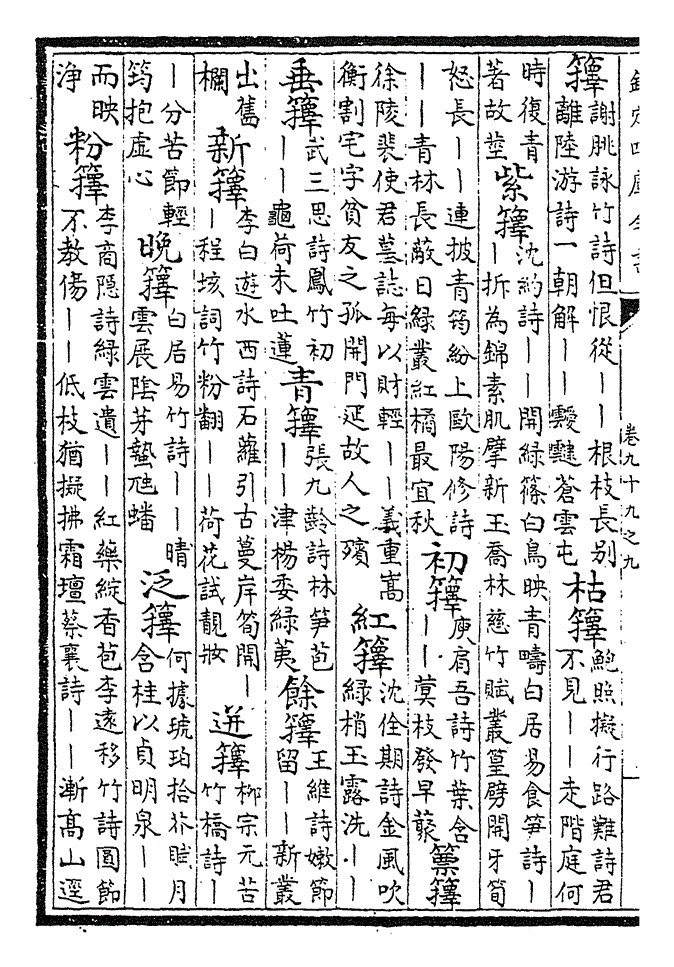 欽定四庫全書
卷九十九之九
籜
謝朓詠竹詩但恨從——根枝長別
離陸游詩一朝解——靉靆蒼雲屯
枯籜
鮑照擬行路難詩君
不見——走階庭何
時復青
著故莖
紫籜
沈約詩——開緑篠白鳥映青疇白居易食笋詩—
—拆為錦素肌擘新玉喬林慈竹賦叢篁劈開牙筍
怒長——連披青筠紛上歐陽修詩
——青林長蔽日緑叢紅橘最宜秋
初籜
庾肩吾詩竹葉含
——蓂枝發早
籜
徐陵裴使君墓誌每以財輕——義重嵩
衡割宅字貧友之孤開門延故人之殯
紅籜
沈佺期詩金風吹
緑梢玉露洗——
垂籜
武三思詩鳳竹初
——龜荷未吐蓮
青籜
張九齡詩林笋苞
——津楊委緑荑
餘籜
王維詩嫩節
留——新叢
出舊
欄
新籜
李白遊水西詩石蘿引古蔓岸筍開—
—程垓詞竹粉翻——荷花試靚妝
迸籜
柳宗元苦
竹橋詩—
—分苦節輕
筠抱虛心
晚籜
白居易竹詩——晴
雲展陰芽蟄虺蟠
泛籜
何據琥珀拾芥賦月
含桂以貞明泉——
而映
浄
粉籜
李商隱詩緑雲遺——紅藥綻香苞李遠移竹詩圓節
不教傷——低枝猶擬拂霜壇蔡襄詩——漸高山逕